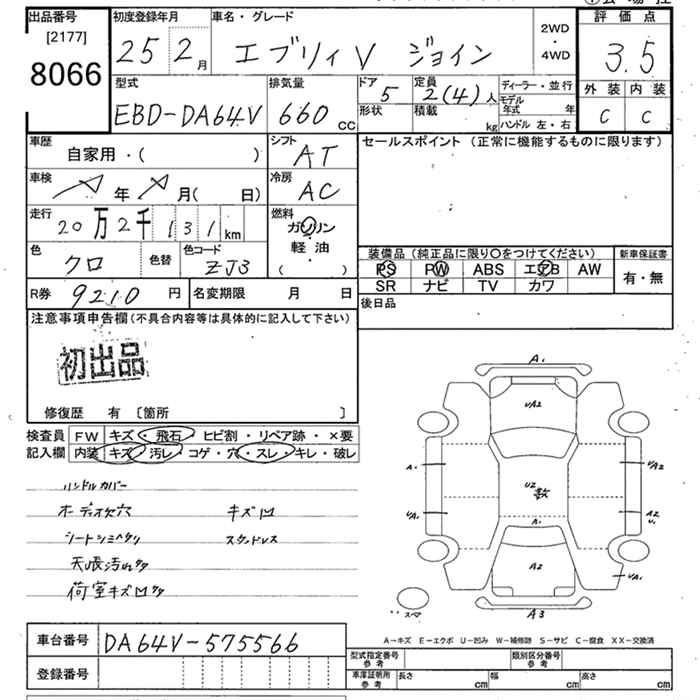 出品番号 初度登録年月 車名・グレード 評価点
[2177]
8066
25 2月 エブリィV ジョイン 2WD ・ 4WD 3.5
外装 内装
C C
型式 排気量 ドア 定員 ディーラー・並行
EBD-DA64V 660 CC 5 2(4)人
形状 積載 kg モデル年式 年
ハンドル 左・右
車歴 シフト セールスポイント (正常に機能するものに限ります)
自家用・( ) AT
車検 年 月( 日) 冷房 AC
走行 20万2千131km 燃料 ガソリン
軽油
( )
色 クロ 色替 色コード ZJ3
装備品 (純正品に限り〇をつけてください) 新車保証書
PS PW ABS エアB AW 有・無
SR ナビ TV カワ
R券 9210円 名変期限 月 日 後日品
注意事項申告欄 (不具合内容等は具体的に記入して下さい)
初出品
修復歴 有 〔箇所 〕
検査員 FW キズ・飛石・ヒビ割・リペア跡・×要
記入欄 内装 キズ・汚レ・コゲ・穴・スレ・キレ・破レ
ハンドルカバー
オーディオ欠穴 キズ凹
シートシミヘタリ スタッドレス
天張汚レ
荷室キズ凹
A1
UA2
A1 UA2
U2
UA1 A2
U1
A1
A2 UA1
スペア A3
車台番号 DA64V-575566
登録番号
A-キズ E-エクボ U-凹み W-補修跡 S-サビ C-腐食 XX-交換済
型式指定番号 参考 類別区分番号 参考
車庫証明用 参考 長さ cm 幅 cm 高さ cm